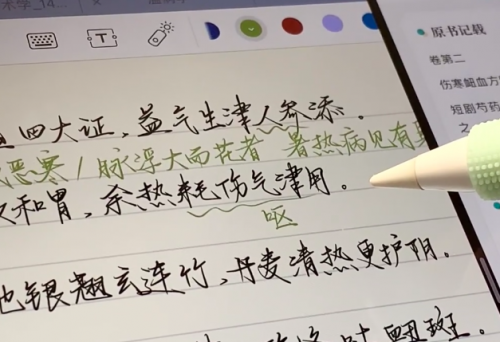 术学_14...
T
原书记载
卷第二
伤寒衄血方
短剧芍药
四大证,益气生津人参添。
恶寒/脉浮大而芤者 暑热病见有
和胃,余热耗伤气津用。
呕
地银翘玄连竹,丹麦清热更护阴。
斑。